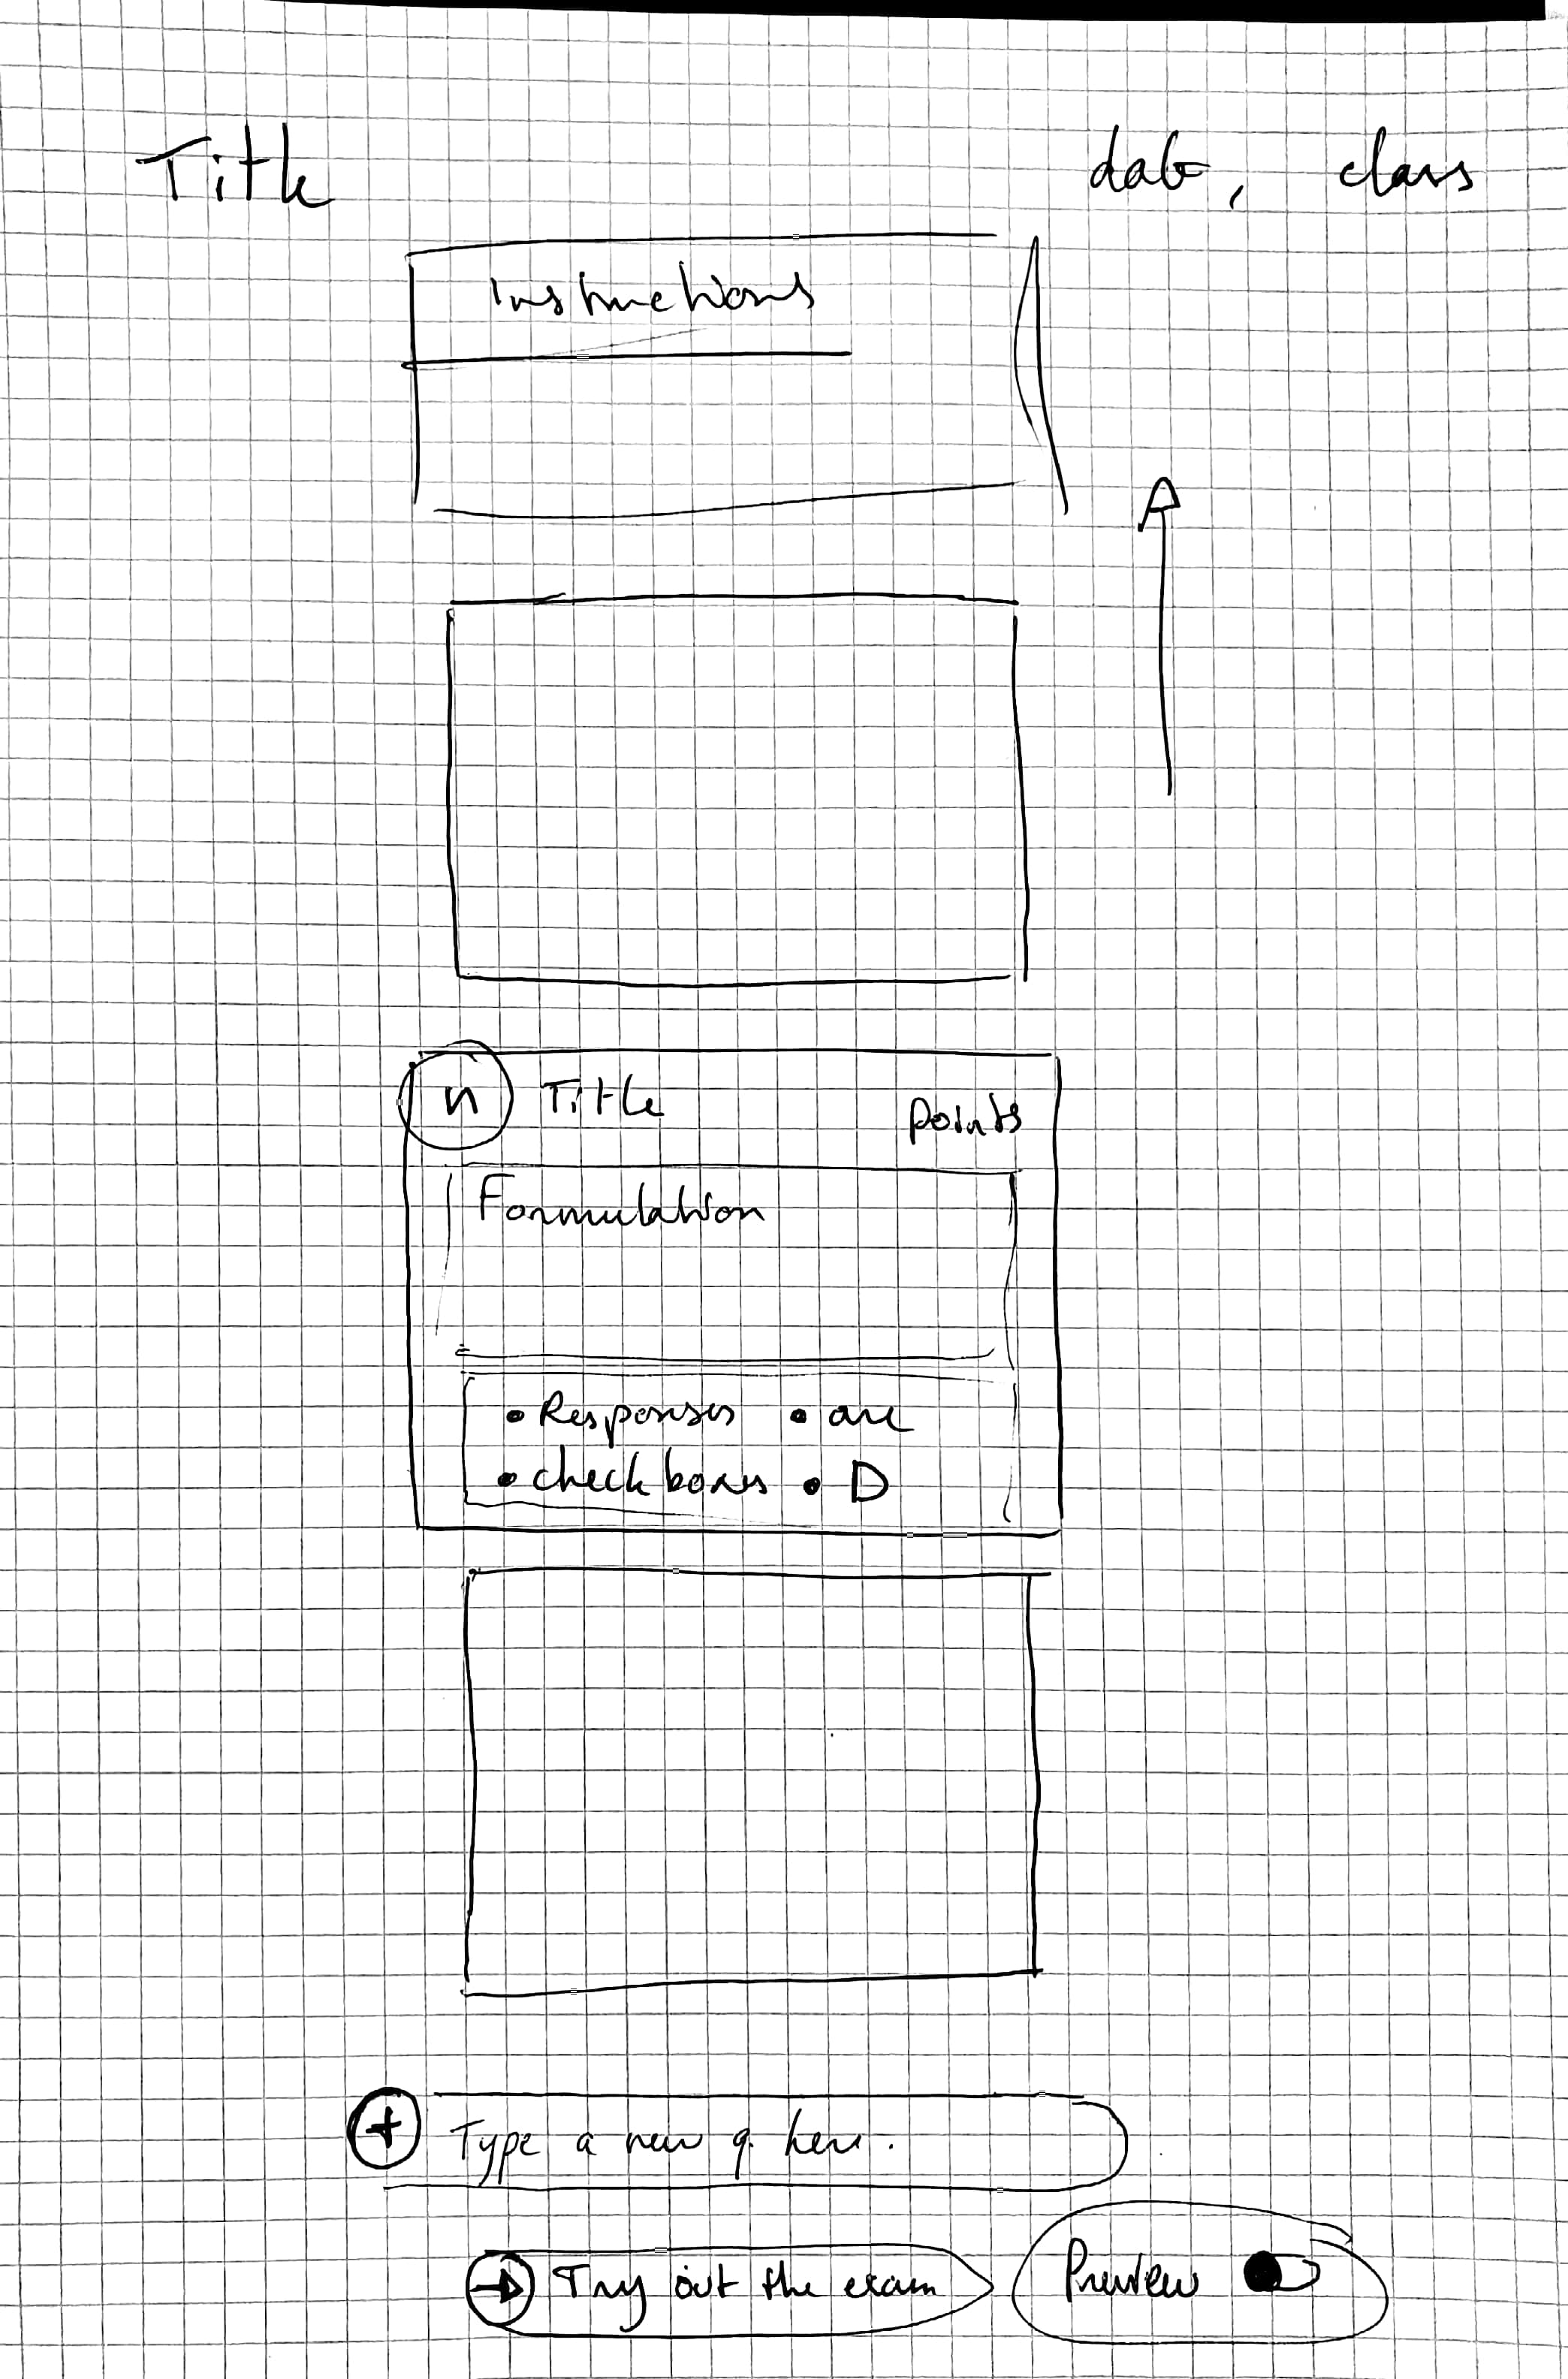 Title date, class
Instructions
n Title points
Formulation
• Responses • are
• checkboxes • D
+ Type a new q. here.
→ Try out the exam Preview